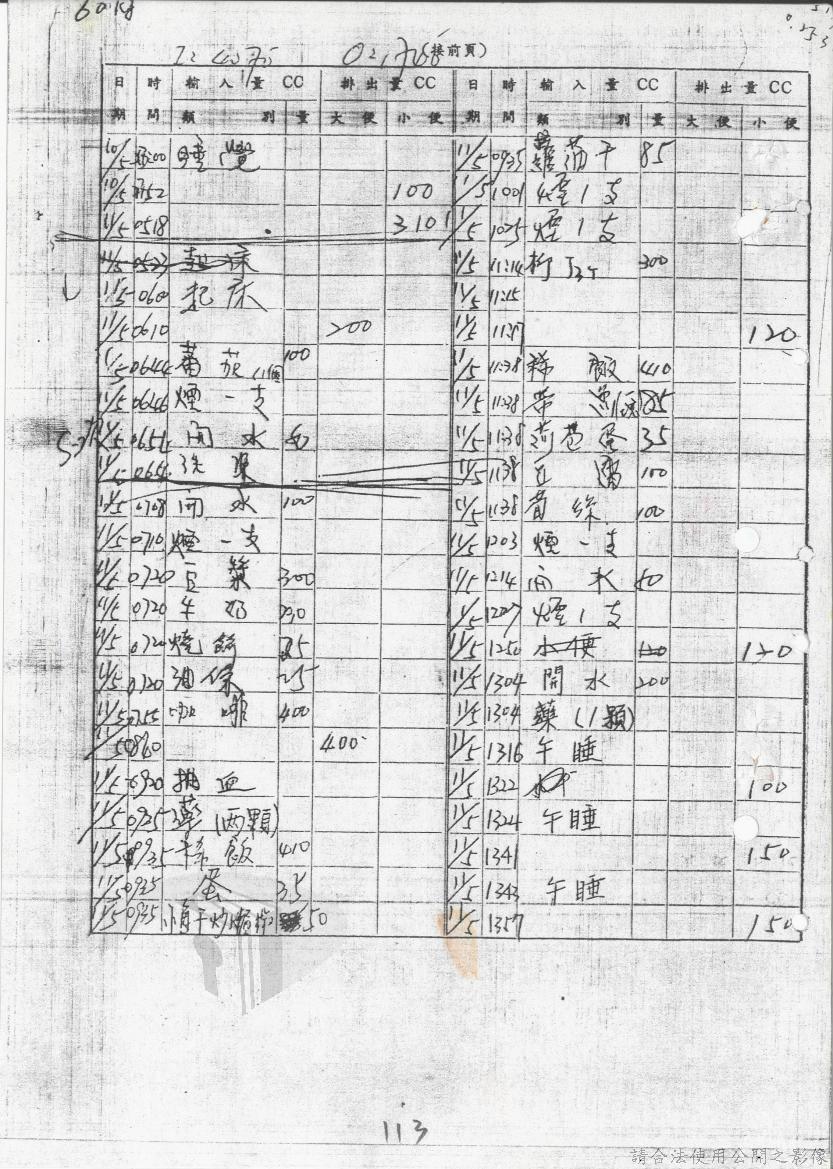 60 kg
(接前頁)
日期 時間 輸入量 CC 類別 量 排出量 CC 大便 小便
日期 時間 輸入量 CC 類別 量 排出量 CC 大便 小便
10/5 睡覺
10/5 100
11/5 0518 310
11/5 0533 起床
11/5 0600 起床
11/5 0610 200
11/5 0644 蕃茄(1個) 100
11/5 0646 煙一支
11/5 0654 開水
11/5 洗澡
11/5 0708 開水 100
11/5 0710 煙一支
11/5 0720 豆漿 300
11/5 0720 牛奶
11/5 0720 燒餅
11/5 0720 油條
11/5 0755 咖啡 400
11/5 400
11/5 0920 抽血
11/5 0935 藥(兩顆)
11/5 0935 稀飯 410
11/5 0935 蛋 35
11/5 0935 50
11/5 0935 蘿蔔干 85
11/5 1001 煙1支
11/5 1025 煙1支
11/5 11:14 柳丁汁 300
11/5 11:15
11/5 11:17 120
11/5 11:38 稀飯 410
11/5 11:38
11/5 11:38 荷苞蛋 35
11/5 11:38 100
11/5 11:38 100
11/5 1203 煙一支
11/5 1214 開水 50
11/5 1227 煙1支
11/5 1250 小便 120
11/5 1304 開水 200
11/5 1304 藥(1顆)
11/5 1316 午睡
11/5 1322 100
11/5 1324 午睡
11/5 1341 150
11/5 1343 午睡
11/5 1357 150
113
請合法使用公開之影像